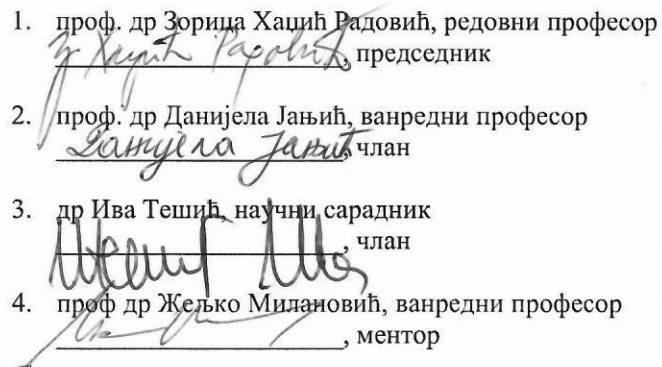 1. проф. др Зорица Хаџић Радовић, редовни професор
, председник
2. проф. др Данијела Јањић, ванредни професор
Данијела Јањић, члан
3. др Ива Тешић, научни сарадник
, члан
4. проф др Жељко Милановић, ванредни професор
, ментор